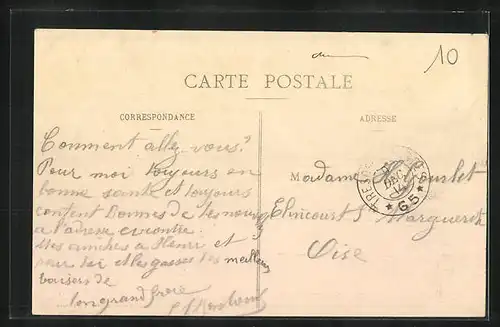 10
CARTE POSTALE
CORRESPONDANCE
ADRESSE
Comment allez vous?
Pour moi toujours en
bonne santé et toujours
content Donnes de tes nouv
a l'adresse
Mes amitiés a Henri et
pour toi et les gosses les meilleurs
baisers de
ton grand frère
Madame
Elincourt S Marguerite
Oise
TRESOR
DEC
14
* G.5 *